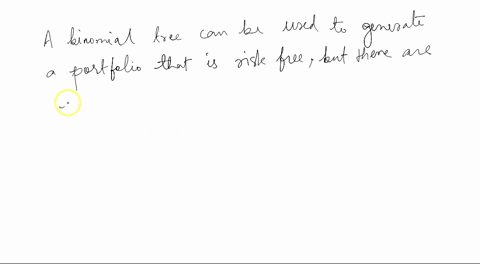 A binomial tree can be used to generate
a portfolio that is risk free, but there are